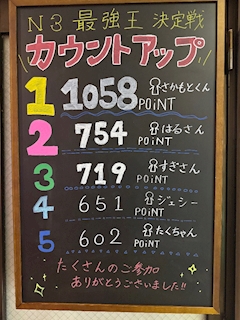 N3 最強王 決定戦
カウントアップ
1 1058 POINT さかもとくん
2 754 POINT はるさん
3 719 POINT すぎさん
4 651 POINT ジェシー
5 602 POINT たくちゃん
たくさんのご参加
ありがとうございました!!